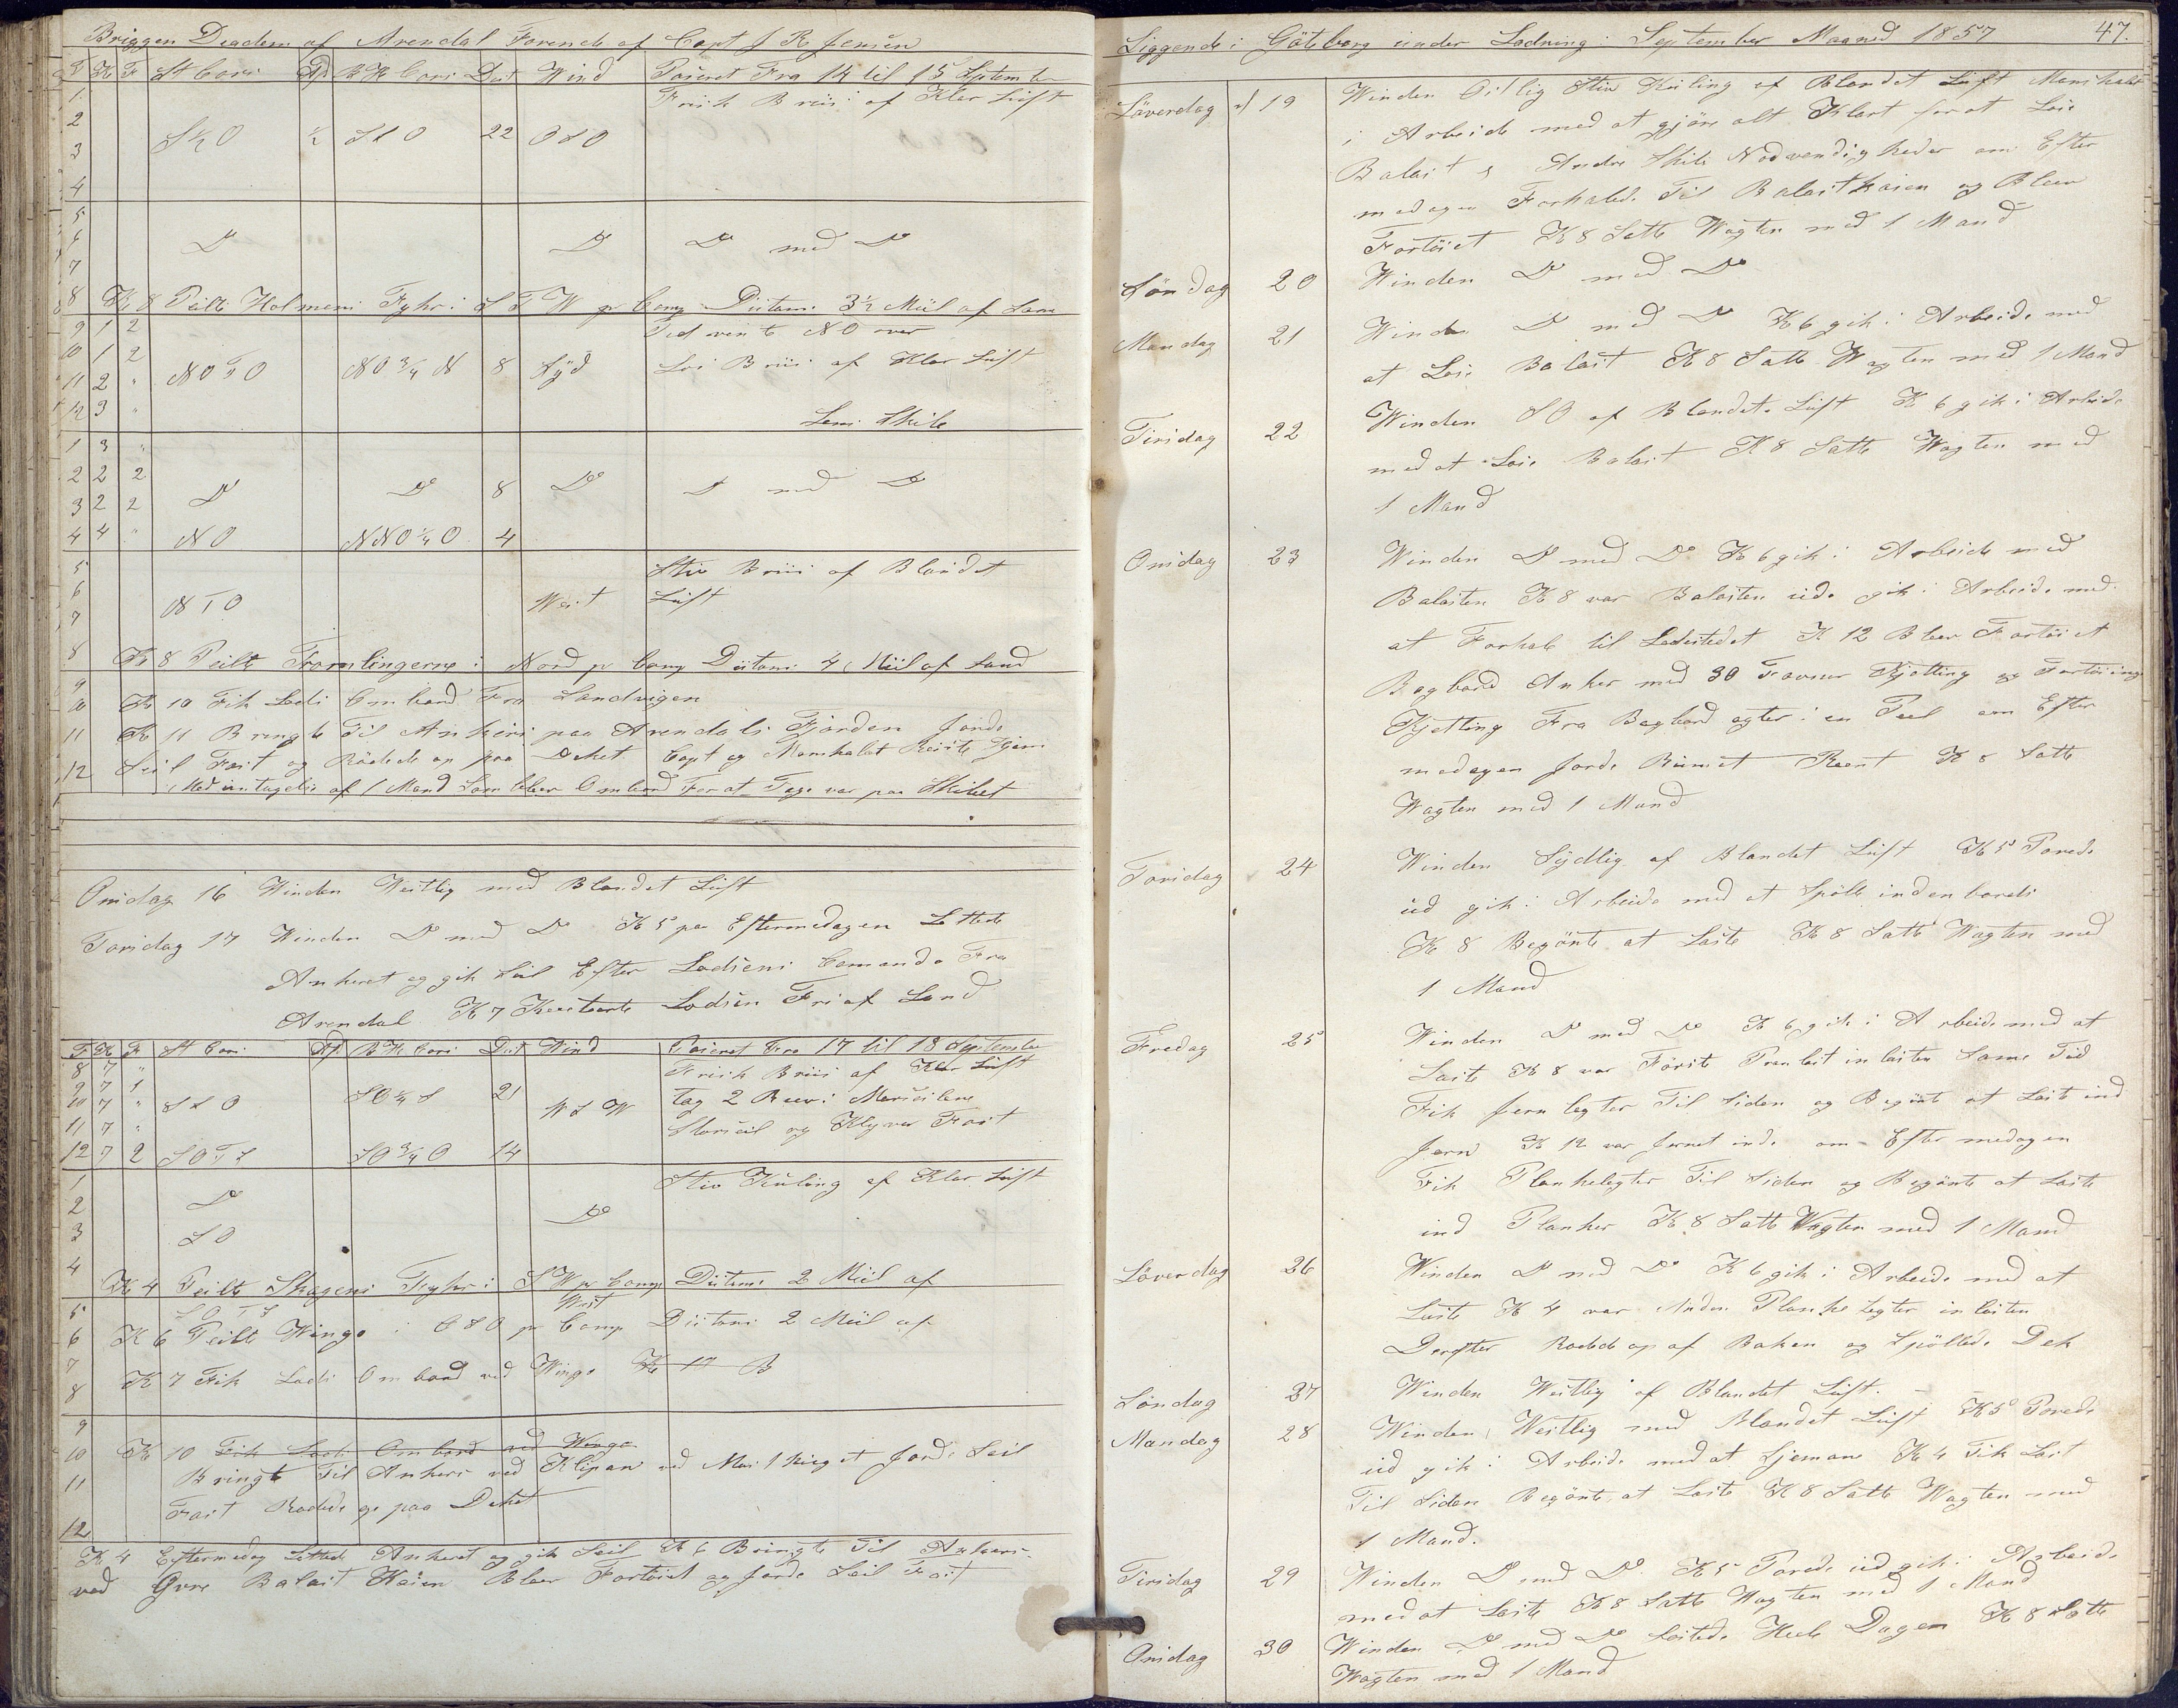 Briggen Diadem af Arendal Förende af Capt J R Jensen
T K F St Cors Af B K Cors Dist Wind Paseret Fra 14 til 15 Septembe
1 Frisk Briis af Klar Lüft
2
3 S½O ½ StO 22 OSO
4
5
6 Do Do Do med Do
7
8 K 8 Peilte Holmens Fyhr i StW pr Comp Distans 3½ Miil af Som
9 1 2 Tid vente NO over
10 1 2
11 2 " NOTO NO¾N 8 Syd Loi Briis af Klar Lüft
12 3 " Lens Skib
1 3 "
2 2 2
3 2 2 Do Do 8 Do Do med Do
4 4 " NO NNO¼O 4
5 Stiv Briis af Blandet
6 NTO West Lüft
7
8 K 8 Peilte Tromlingerne i Nord pr Comp Distans 4 Miil af Land
9
10 K 10 Fik Lods Ombord Fra Sandvigen
11 K 11 Bragte Til Ankers paa Arendals Fjorden Jorde
12 Seil Fast og Rödede op paa Deket Capt og Manskabet Reiste Hjem
Med untagelse af 1 Mand Som blev Ombord For at Tage var paa Skibet
Onsdag 16 Winden Westlig med Blandet Lüft
Torsdag 17 Winden Do med Do K 5 pa Eftermedagen Lettede
Ankeret og gik Seil Efter Lodsens Comando Fra
Arendal K 7 Kvieterte Lodsen Fri af Land
T K F St Cors Af B K Cors Dist Wind Paseret Fra 17 til 18 Septembe
8 7 " Frisk Briis af Klar Lüft
9 7 1 SO¼S 21 Tog 2 Reev i Merseilene
10 7 " SSO WSW Storseil og Klyver Fast
11 7 "
12 7 2 SOTS SO¾O 14
1 Stiv Küling af Klar Lüft
2 Do Do
3 SO
4 K 4 Peilte Skagens Fyhr i SW pr Comp Distans 2 Miil af
5 SOTS West
6 K 6 Peilte Wingo i OSO pr Comp Distans 2 Miil af
7
8 K 7 Fik Lods Ombord ved Wingo K 10 B
9
10 K 10 Fik Lods Ombord ved Wingo
11 Bringte Til Ankers ved Klipan ved Mas 1 Jorde Seil
12 Fast Rödede op paa Deket
K 4 Eftermedag Lettede Ankeret og gik Seil K 6 Bringte Til Ankers
ved Balast Kaien Blev Fortöiet og Jorde Seil Fast
Liggende i Göteborg under Ladning i September Maaned 1857 47.
Löverdag d 19 Winden Östlig Stiv Küling af Blandet Lüft Manskabet
i Arbeide med at gjöre alt Klart for at Lose
Balast og Andre Skibs Nödvendigheder om Efter
medagen Forhalede Til Balastkaien og Bleev
Fortöiet K 8 Satte Wagten med 1 Mand
Söndag 20 Winden Do med Do
Mandag 21 Winden Do med Do K 6 gik i Arbeide med
at Lose Balast K 8 Satte Wagten med 1 Mand
Tirsdag 22 Winden SO af Blandet Lüft K 6 gik i Arbeide
med at Lose Balast K 8 Satte Wagten med
1 Mand
Onsdag 23 Winden Do med Do K 6 gik i Arbeide med
Balasten K 8 var Balasten üde gik i Arbeide med
at Forhale til Ladestedet K 12 Bleev Fortöiet
Bagbord Anker med 30 Favner Kjetting og Fortöinngs
Kjetting Fra Bagbord agter i en Peel om Efter
medagen Jorde Rümet Reent K 8 Satte
Wagten med 1 Mand
Torsdag 24 Winden Sydlig af Blandet Lüft K 5 Porede
üd gik i Arbeide med at Spöle indenbords
K 8 Begönte at Laste K 8 Satte Wagten med
1 Mand
Fredag 25 Winden Do med Do K 6 gik i Arbeide med at
Laste K 8 var Förste Pramlast inlasten Same Tiid
Fik Jern legter Til Siden og Begönte at Laste ind
Jern K 12 var Jernet inde om Efter medagen
Fik Plankelegter Til Siden og Begönte at Laste
ind Planker K 8 Satte Wagten med 1 Mand
Löverdag 26 Winden Do med Do K 6 gik i Arbeide med at
Laste K 4 var Anden Planke Legter inlasten
Derefter Rödede op af Baken og Spöllede Dek
Söndag 27 Winden Westlig af Blandet Lüft.
Mandag 28 Winden Westlig med Blandet Lüft K 5 Porede
üd gik i Arbeide med at K 4 Fik Last
Til Siden Begönte at Laste K 8 Satte Wagten med
1 Mand.
Tirsdag 29 Winden Do med Do K 5 Porede üd gik i Arbeide
med at Laste K 8 Satte Wagten med 1 Mand
Onsdag 30 Winden Do med Do Lastede Hele Dagen K 8 Satte
Wagten med 1 Mand